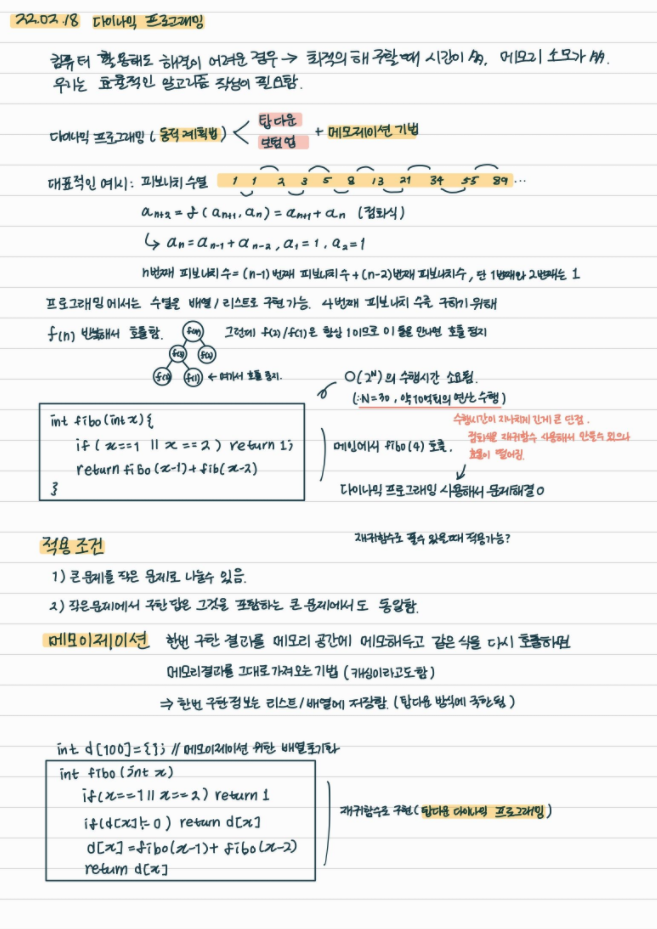 22.02.18 다이나믹 프로그래밍
컴퓨터 활용해도 해결이 어려운 경우 → 최적의 해 구할때 시간이 많, 메모리 소모가 많.
우리는 효율적인 알고리즘 작성이 필요함.
다이나믹 프로그래밍 ( 동적 계획법 ) < 탑다운 보텀업 + 메모제이션 기법
대표적인 예시: 피보나치 수열 1 1 2 3 5 8 13 21 34 55 89 ...
an+2 = f ( an+1, an ) = an+1 + an (점화식)
↳ an = an-1 + an-2 , a1 = 1, a2 = 1
n번째 피보나치수 = (n-1)번째 피보나치수 + (n-2)번째 피보나치수, 단 1번째와 2번째는 1
프로그래밍에서는 수열을 배열/리스트로 구현 가능. 4번째 피보나치 수를 구하기 위해
f(n) 반복해서 호출함. 그런데 f(2)/f(1)은 항상 1이므로 이 둘을 만나면 호출 정지
f(4)
f(3) f(2)
f(2) f(1) ← 여기서 호출 중지.
O(2^N)의 수행시간 소요됨.
(∵N=30, 약10억의 연산 수행)
int fibo(int x){
if ( x==1 || x==2 ) return 1;
return fibo(x-1)+fib(x-2)
}
메인에서 fibo(4) 호출.
수행시간이 지나치게 긴게 큰 단점.
점화식은 재귀함수 사용해서 만들수 있으나
효율이 떨어짐.
다이나믹 프로그래밍 사용해서 문제해결 O
적용 조건
재귀함수로 풀수 있을때 적용가능?
1) 큰 문제를 작은 문제로 나눌수 있음.
2) 작은문제에서 구한 답은 그것을 포함하는 큰 문제에서도 동일함.
메모이제이션 한번 구한 결과를 메모리 공간에 메모해두고 같은 식을 다시 호출하면
메모리결과를 그대로 가져오는 기법 (캐싱이라고도 함)
⇒ 한번 구한 정보는 리스트/배열에 저장함. (탑다운 방식에 국한됨)
int d[100]={}; // 메모이제이션 위한 배열초기화
int fibo(int x)
if(x==1 || x==2) return 1
if(d[x]!=0 ) return d[x]
d[x] =fibo(x-1)+ fibo(x-2)
return d[x]
재귀함수로 구현 ( 탑다운 다이나믹 프로그래밍 )